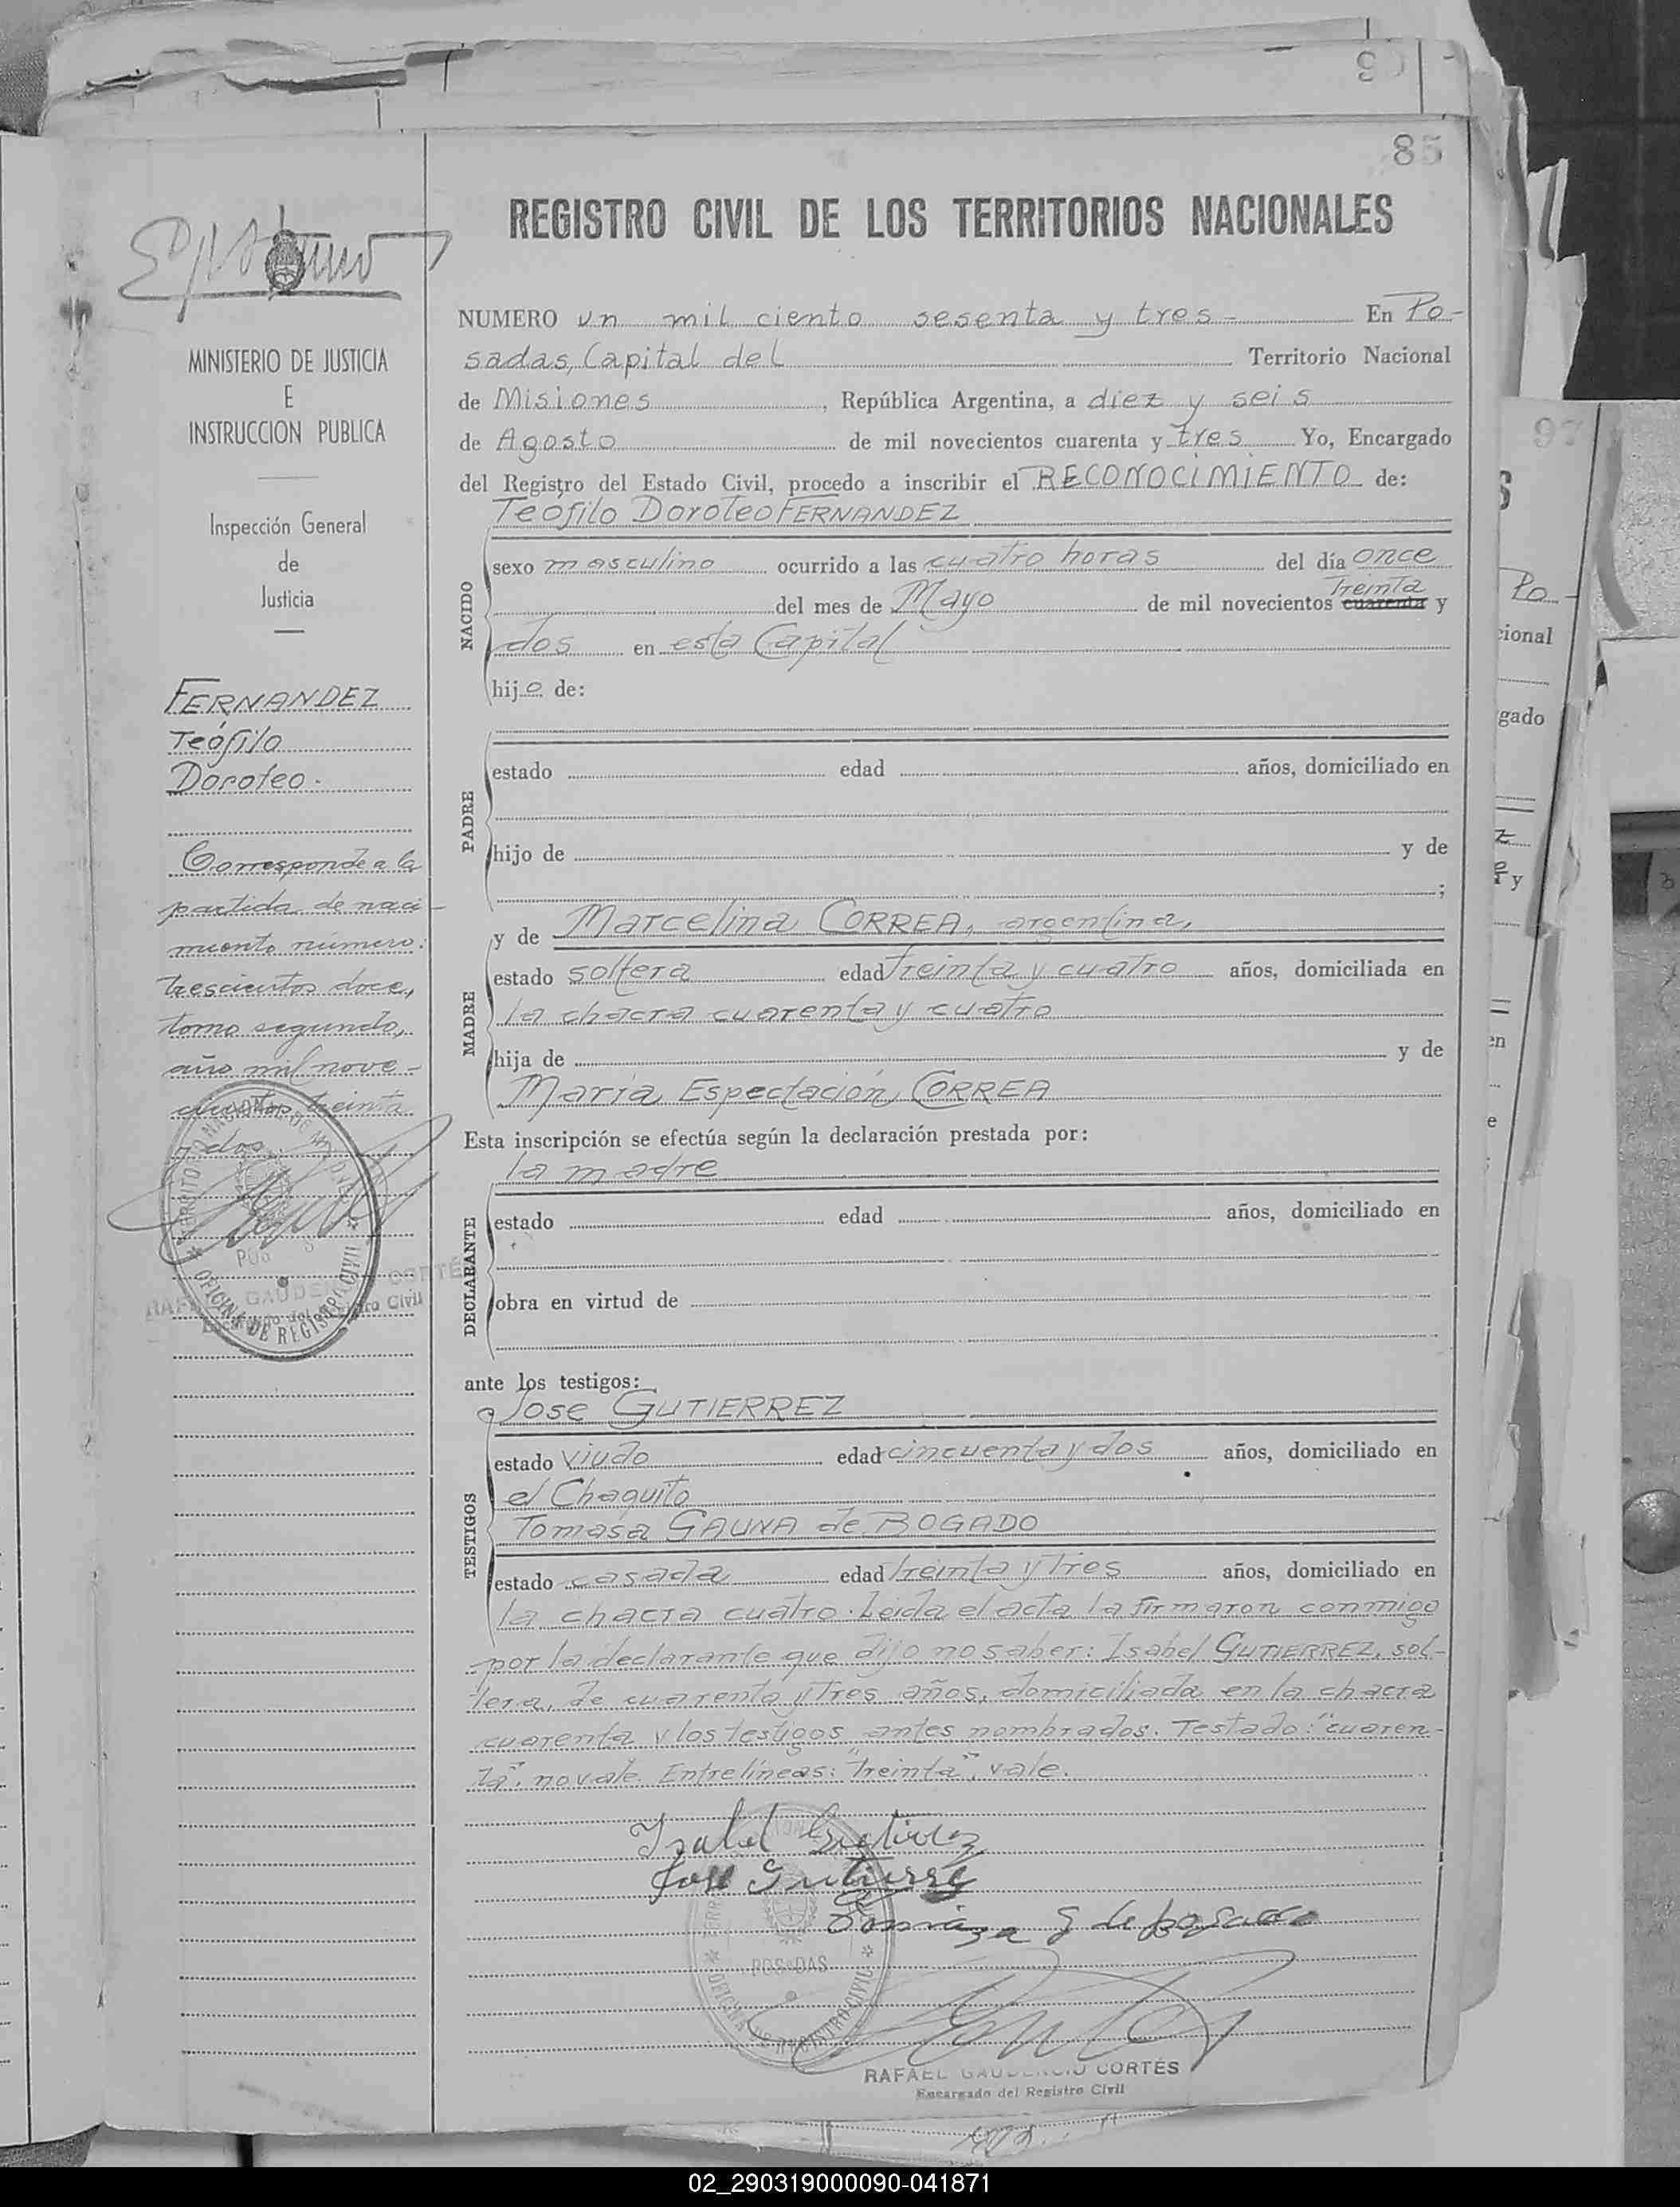 90
85
REGISTRO CIVIL DE LOS TERRITORIOS NACIONALES
MINISTERIO DE JUSTICIA
E
INSTRUCCION PUBLICA
Inspección General
de
Justicia
FERNANDEZ
Teófilo
Doroteo.
Corresponde a la
partida de naci-
miento número:
trescientos doce,
tomo segundo,
año mil nove-
cientos treinta
y dos.
OFICINA DE REGISTRO CIVIL
RAFAEL GAUDENCIO CORTÉS
Encargado del Registro Civil
NUMERO un mil ciento sesenta y tres- En Po-
sadas, Capital del Territorio Nacional
de Misiones, República Argentina, a diez y seis
de Agosto de mil novecientos cuarenta y tres Yo, Encargado
del Registro del Estado Civil, procedo a inscribir el RECONOCIMIENTO de:
Teófilo Doroteo FERNANDEZ
NACIDO
sexo masculino ocurrido a las cuatro horas del día once
del mes de Mayo de mil novecientos cuarenta treinta y
dos en esta Capital
hijo de:
PADRE
estado edad años, domiciliado en
hijo de y de
;
y de Marcelina CORREA, argentina,
MADRE
estado soltera edad treinta y cuatro años, domiciliada en
la chacra cuarenta y cuatro
hija de y de
María Espectación CORREA
Esta inscripción se efectúa según la declaración prestada por:
la madre
DECLARANTE
estado edad años, domiciliado en
obra en virtud de
ante los testigos:
Jose GUTIERREZ
TESTIGOS
estado viudo edad cincuenta y dos años, domiciliado en
el Chaquito
Tomasa GAUNA de BOGADO
estado casada edad treinta y tres años, domiciliado en
la chacra cuatro. Leida el acta la firmaron conmigo
por la declarante que dijo no saber: Isabel GUTIERREZ, sol-
tera, de cuarenta y tres años, domiciliada en la chacra
cuarenta y los testigos antes nombrados. Testado: "cuaren-
ta", no vale. Entrelíneas: "treinta", vale.
Isabel Gutierrez
Jose Gutierrez
POSADAS
OFICINA DE REGISTRO CIVIL
RAFAEL GAUDENCIO CORTÉS
Encargado del Registro Civil
97
Po-
cional
gado
02_290319000090-041871